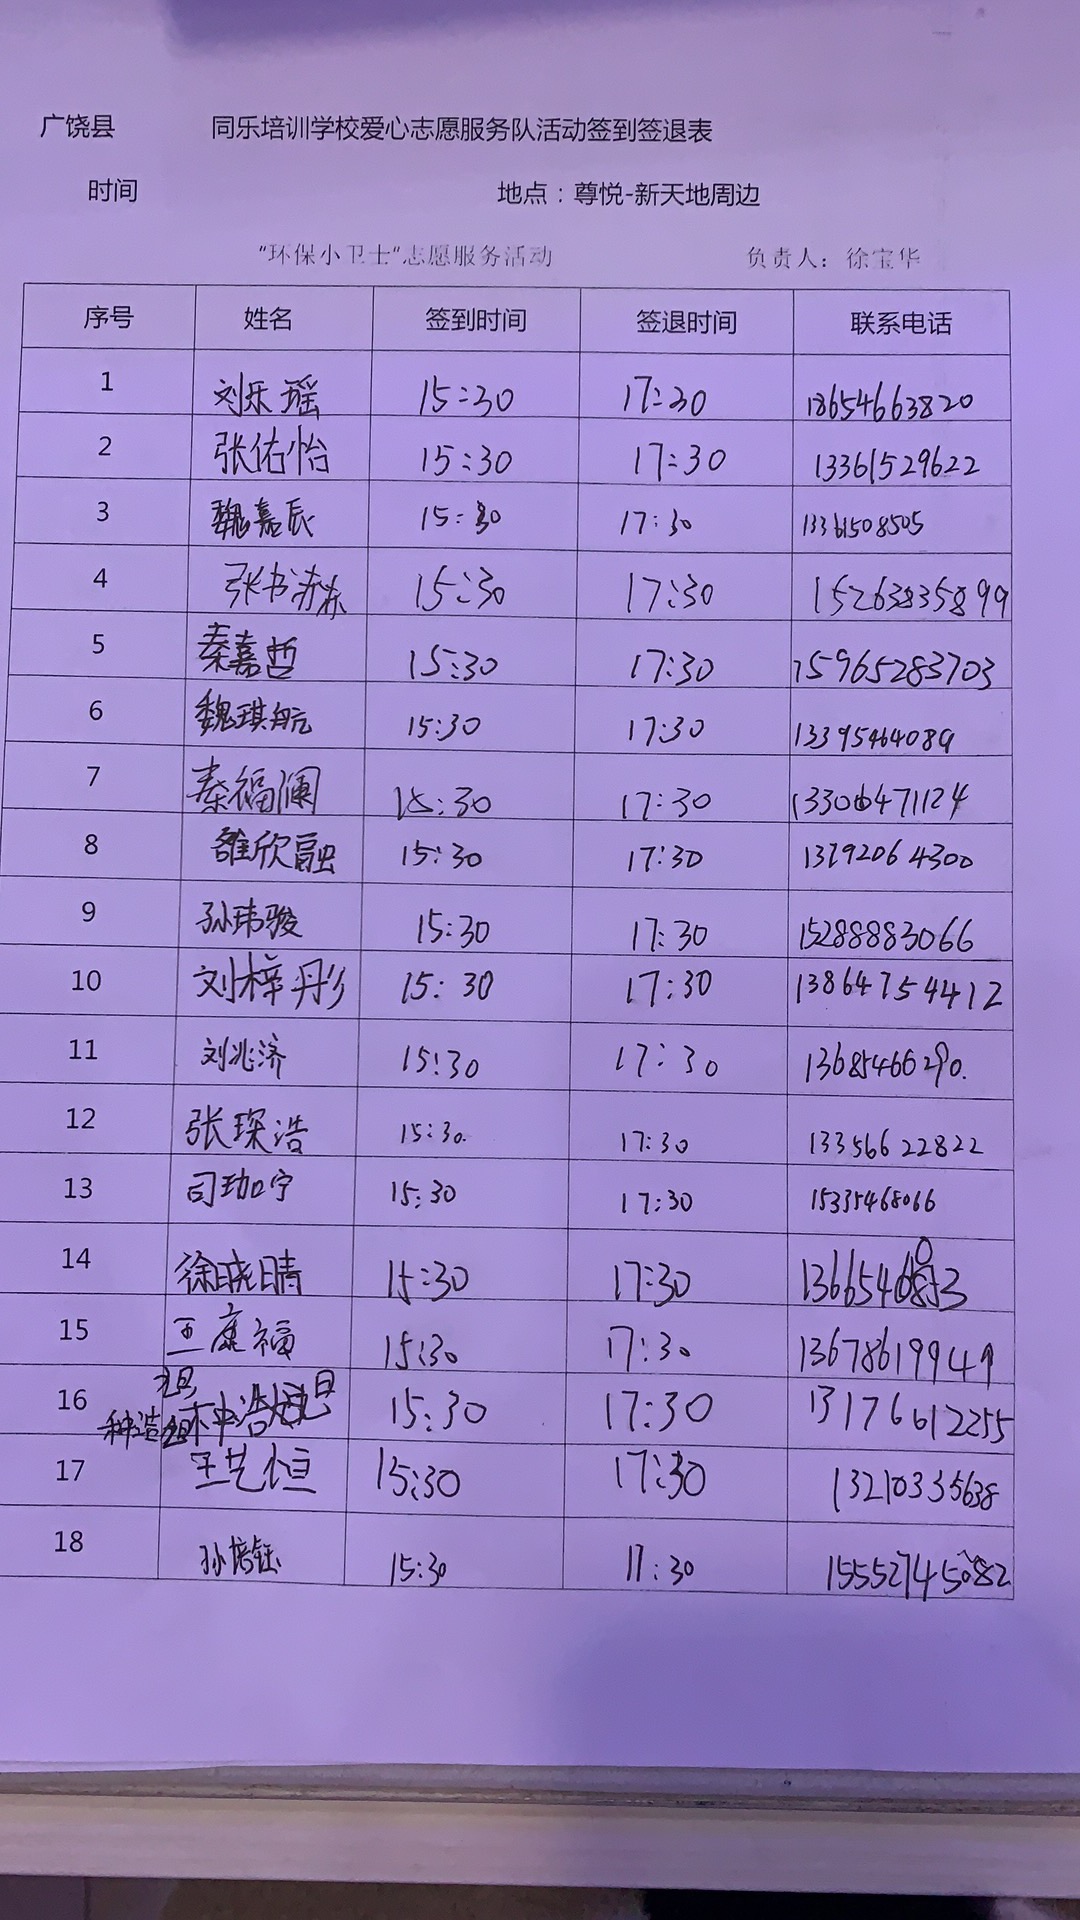 广饶县 同乐培训学校爱心志愿服务队活动签到签退表
时间 地点：尊悦-新天地周边
“环保小卫士“志愿服务活动 负责人：徐宝华
序号 姓名 签到时间 签退时间 联系电话
1 刘乐瑶 15:30 17:30 18654663820
2 张佑怡 15:30 17:30 13361529622
3 魏嘉辰 15:30 17:30 13361508505
4 张书 15:30 17:30 15263835899
5 秦嘉哲 15:30 17:30 15965283703
6 魏琪航 15:30 17:30 13395464089
7 秦福澜 15:30 17:30 13306471124
8 欣融 15:30 17:30 13792064300
9 孙玮骏 15:30 17:30 15288883066
10 刘梓彤 15:30 17:30 13864754412
11 刘兆济 15:30 17:30 13685466290.
12 张琛浩 15:30. 17:30 13356622822
13 司珈宁 15:30 17:30 15335468066
14 徐晓晴 15:30 17:30
15 王康福 15:30 17:30 13678619949
16 15:30 17:30 13176612255
17 王艺恒 15:30 17:30 13210335638
18 孙培钰 15:30 17:30